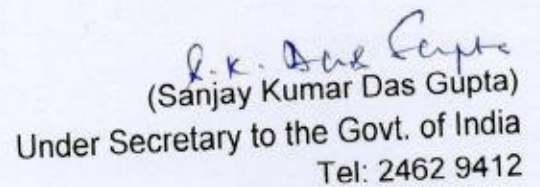 S.K. Das Gupta
(Sanjay Kumar Das Gupta)
Under Secretary to the Govt. of India
Tel: 2462 9412